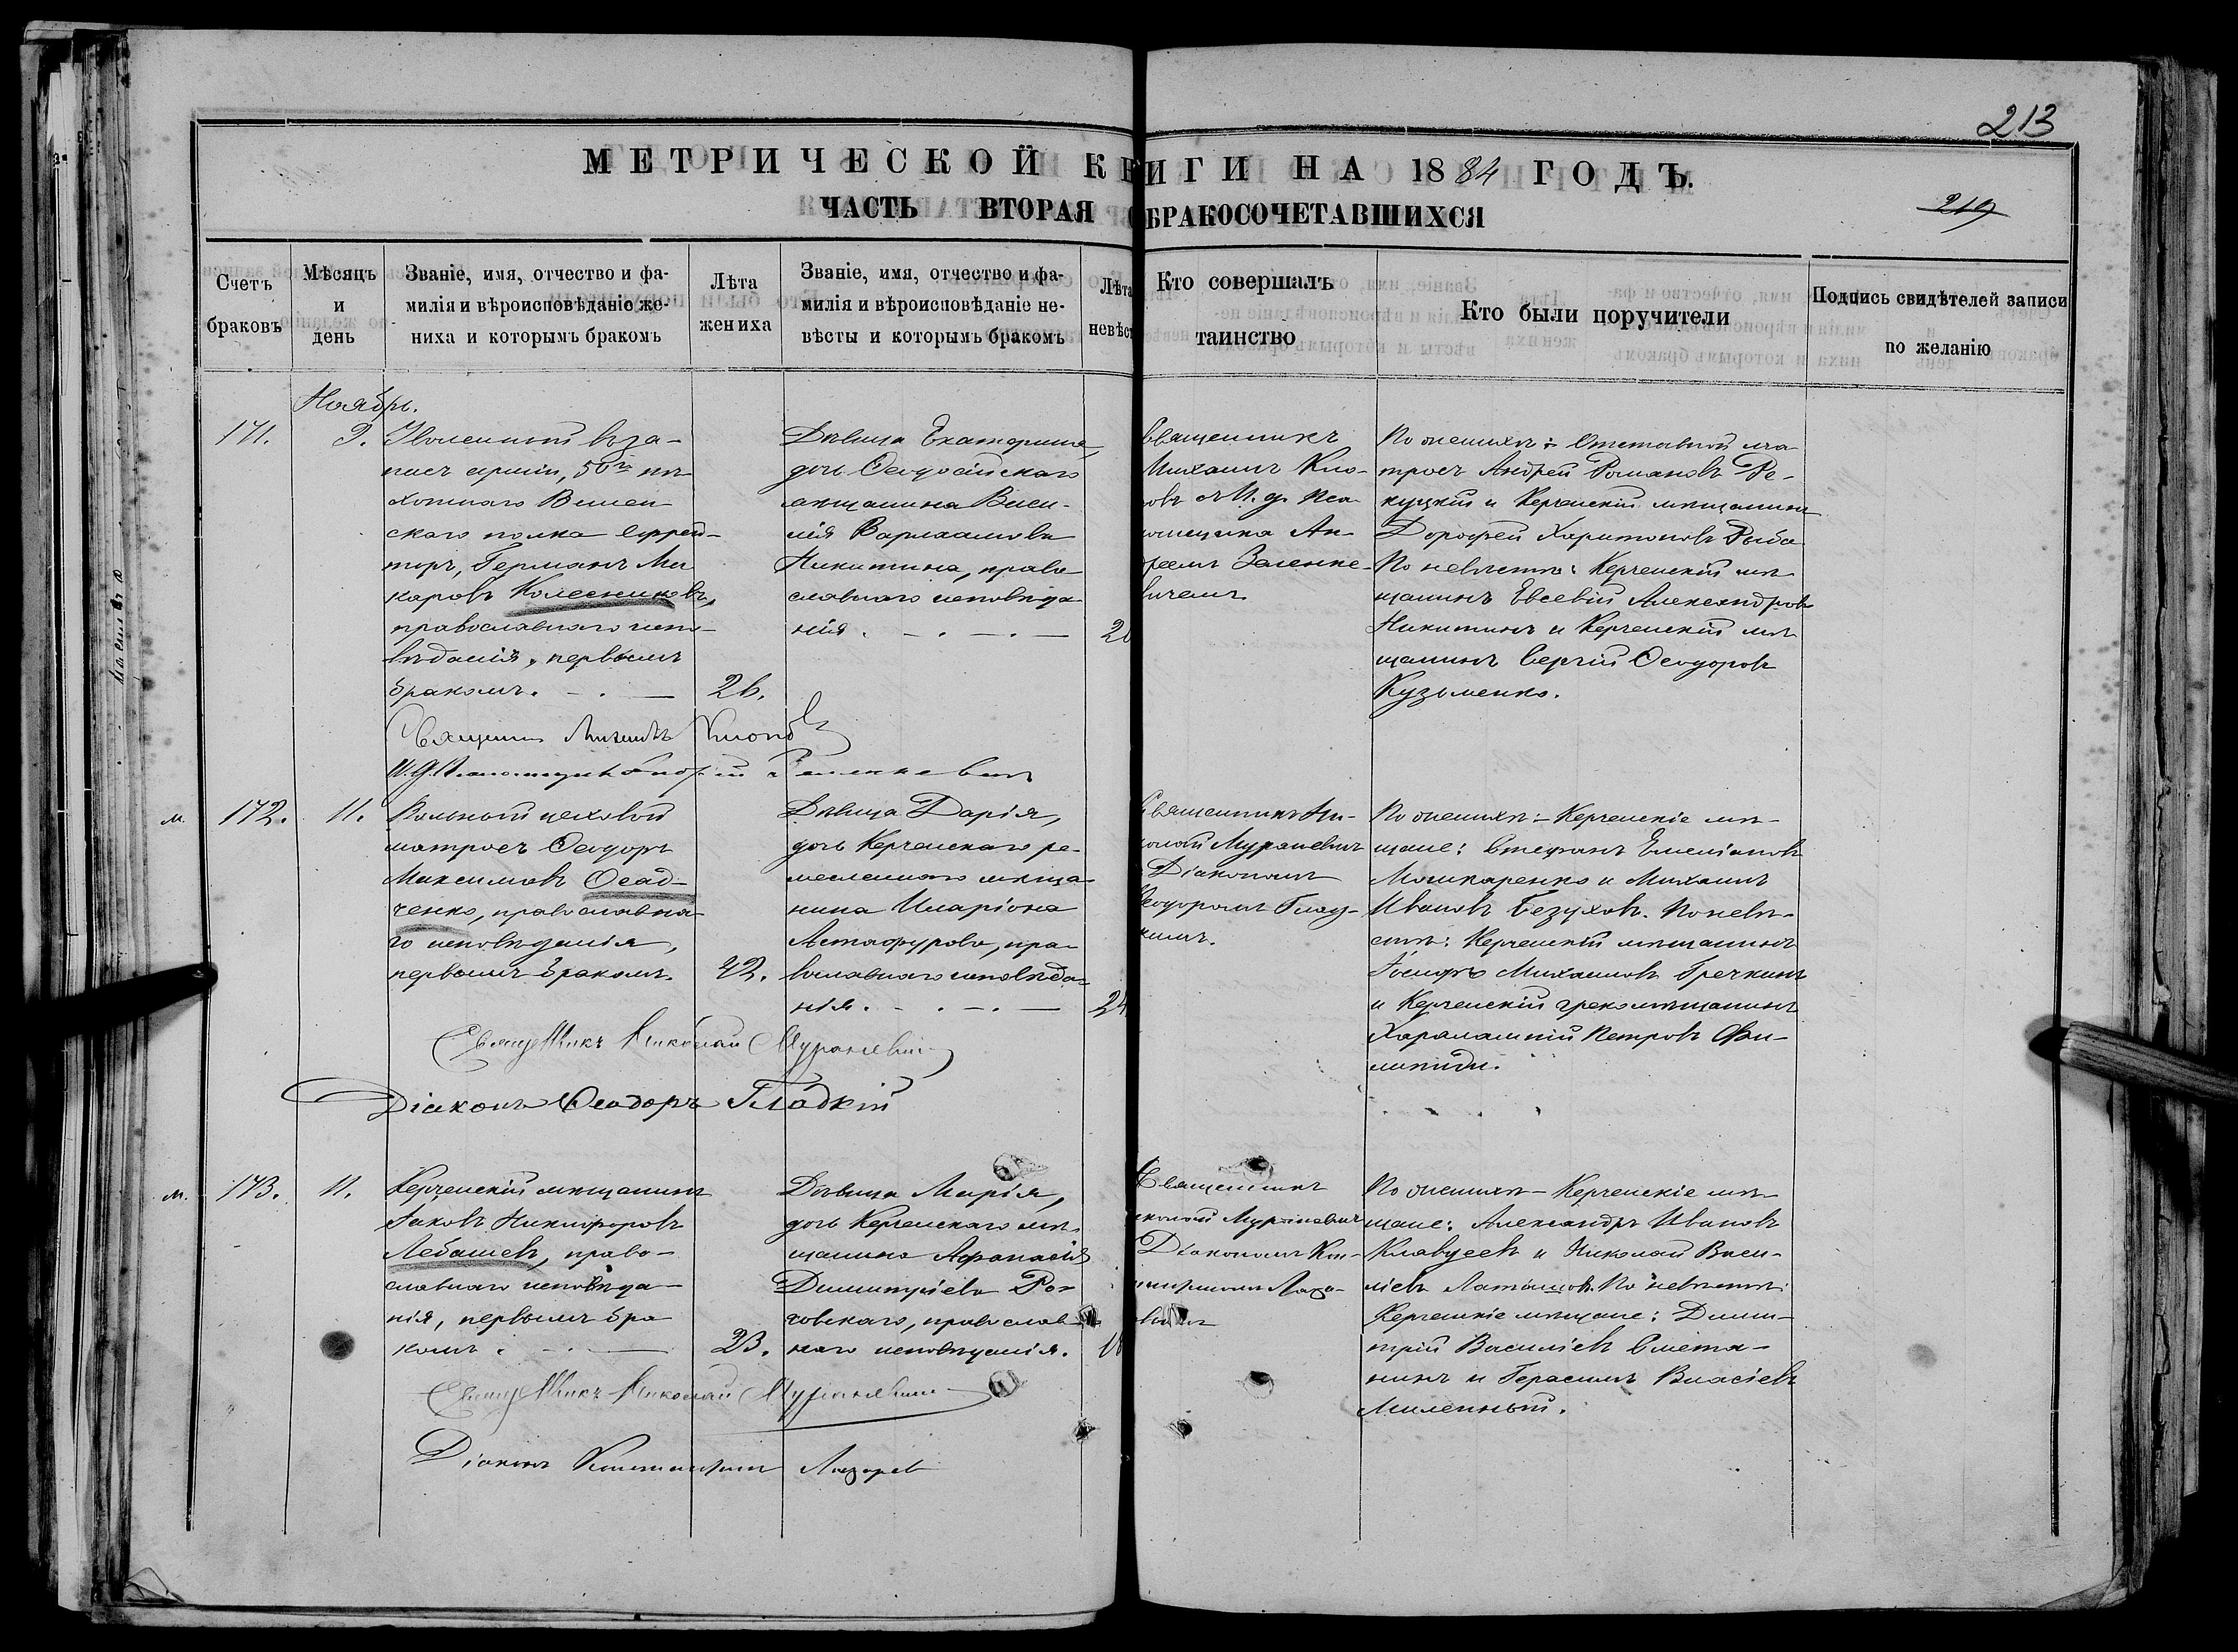 213
МЕТРИЧЕСКОЙ КНИГИ НА 1884 ГОДЪ.
219
ЧАСТЬ ВТОРАЯ БРАКОСОЧЕТАВШИХСЯ
Счетъ
браковъ
Мѣсяцъ
и
день
Званіе, имя, отчество и фа-
милія и вѣроисповѣданіе же-
ниха и которымъ бракомъ
Лѣта
жениха
Званіе, имя, отчество и фа-
милія и вѣроисповѣданіе не-
вѣсты и которымъ бракомъ
Лѣта
невѣст
Кто совершалъ
таинство
Кто были поручители
Подпись свидѣтелей записи
по желанію
Ноябрь.
171.
9.
Уволенный въ за-
пасъ арміи, 50го пѣ-
хотнаго
скаго полка ефрей-
торъ, Германъ Ма
каровъ Колесниковъ,
православнаго испо-
вѣданія, первымъ
бракомъ. - . —
26.
Дѣвица Екатерина,
дочь Ѳеодосійскаго
мѣщанина Васи-
лія Варлаамова
Никитина, право
славнаго исповѣда
нія. - . - . —
20
Священникъ
Михаилъ Кло-
овъ съ И. д. пса-
ломщика Ан-
дреемъ Зеленке-
вичемъ
По женихѣ: Отставной ма
тросъ Андрей Романовъ Ре-
куцкій и Керченскій мѣщанинъ
Дорофей Харитоновъ Рыба
По невѣстѣ: Керченскій мѣ
щанинъ Евсевій Александровъ
Никитинъ и Керченскій мѣ
щанинъ Сергій Ѳеодоровъ
Кузьменко.
Священникъ Михаилъ
И.д. Псаломщика Андрей Зеленкевичъ
м.
172.
11.
Вольный цеховой
матросъ Ѳеодоръ
Максимовъ Осад-
ченко, православна
го исповѣданія,
первымъ бракомъ.
42.
Дѣвица Дарія,
дочь Керченскаго ре-
месленнаго мѣща-
нина Иларіона
Астафурова, пра-
вославнаго исповѣда-
нія. - . - . —
24
Священникъ Ни-
колай Мураневичъ
Діакономъ
Ѳеодоромъ Глад-
кимъ.
По женихѣ: Керченскіе мѣ-
щане: Стефанъ Емеліановъ
Мошкаренко и Михаилъ
Ивановъ Безуховъ. По невѣ-
стѣ: Керченскій мѣщанинъ
Іосифъ Михаиловъ Гречкинъ
и Керченскій грекомѣщанинъ
Харалампій Петровъ Фи-
липиди.
Священникъ Николай Мураневичъ
Діаконъ Ѳеодоръ Гладкій
м.
173.
11.
Керченскій мѣщанинъ
Іаковъ Никифоровъ
Лебашевъ, право-
славнаго исповѣда-
нія, первымъ бра
комъ. - . —
23.
Дѣвица Марія,
дочь Керченскаго мѣ-
щанина Афанасія
Димитріева Ро-
говскаго, православ
наго исповѣданія.
18
Священникъ
иколай Мураневичъ
Діакономъ Кон-
стантиномъ Лаза-
По женихѣ - Керченскіе мѣ-
щане: Александръ Ивановъ
и Николай Васи-
ліевъ По невѣстѣ:
Керченскіе мѣщане: Дими-
трій Василіевъ Смета-
нинъ и Герасимъ Власіевъ
Миленный.
Священникъ Николай Мураневичъ
Діаконъ Константинъ Лазарев